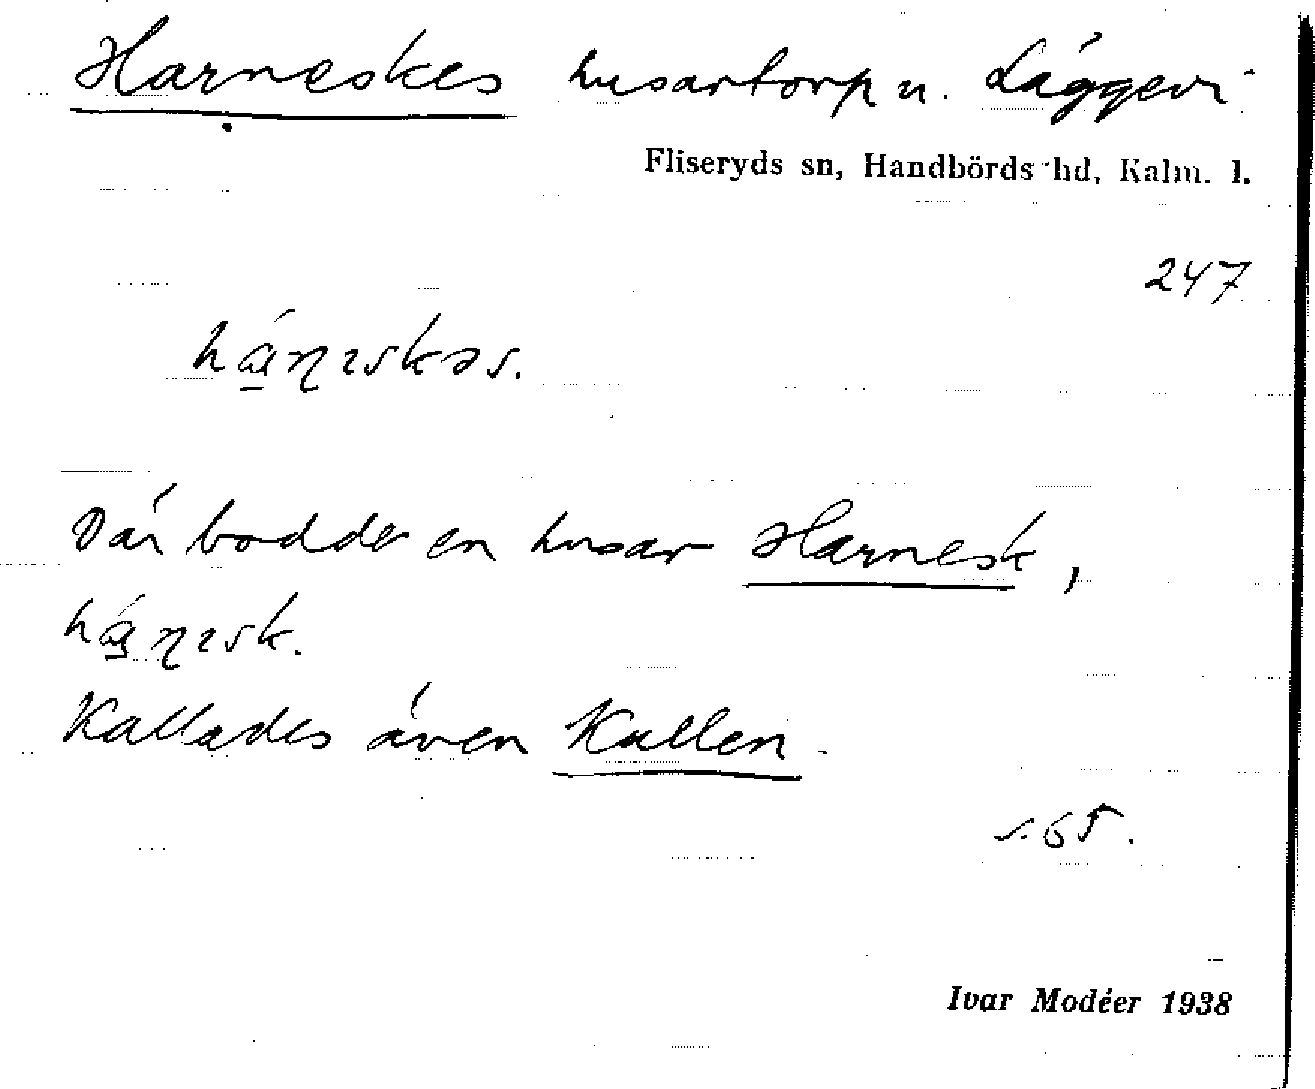 Harneskes husartorp u. Läggevi
Fliseryds sn, Handbörds hd, Kalm. l.
247
há̱ɳıskəs.
Där bodde en husar Harnesk,
há̱ɳısk.
Kallades även Kullen.
s. 65.
Ivar Modéer 1938